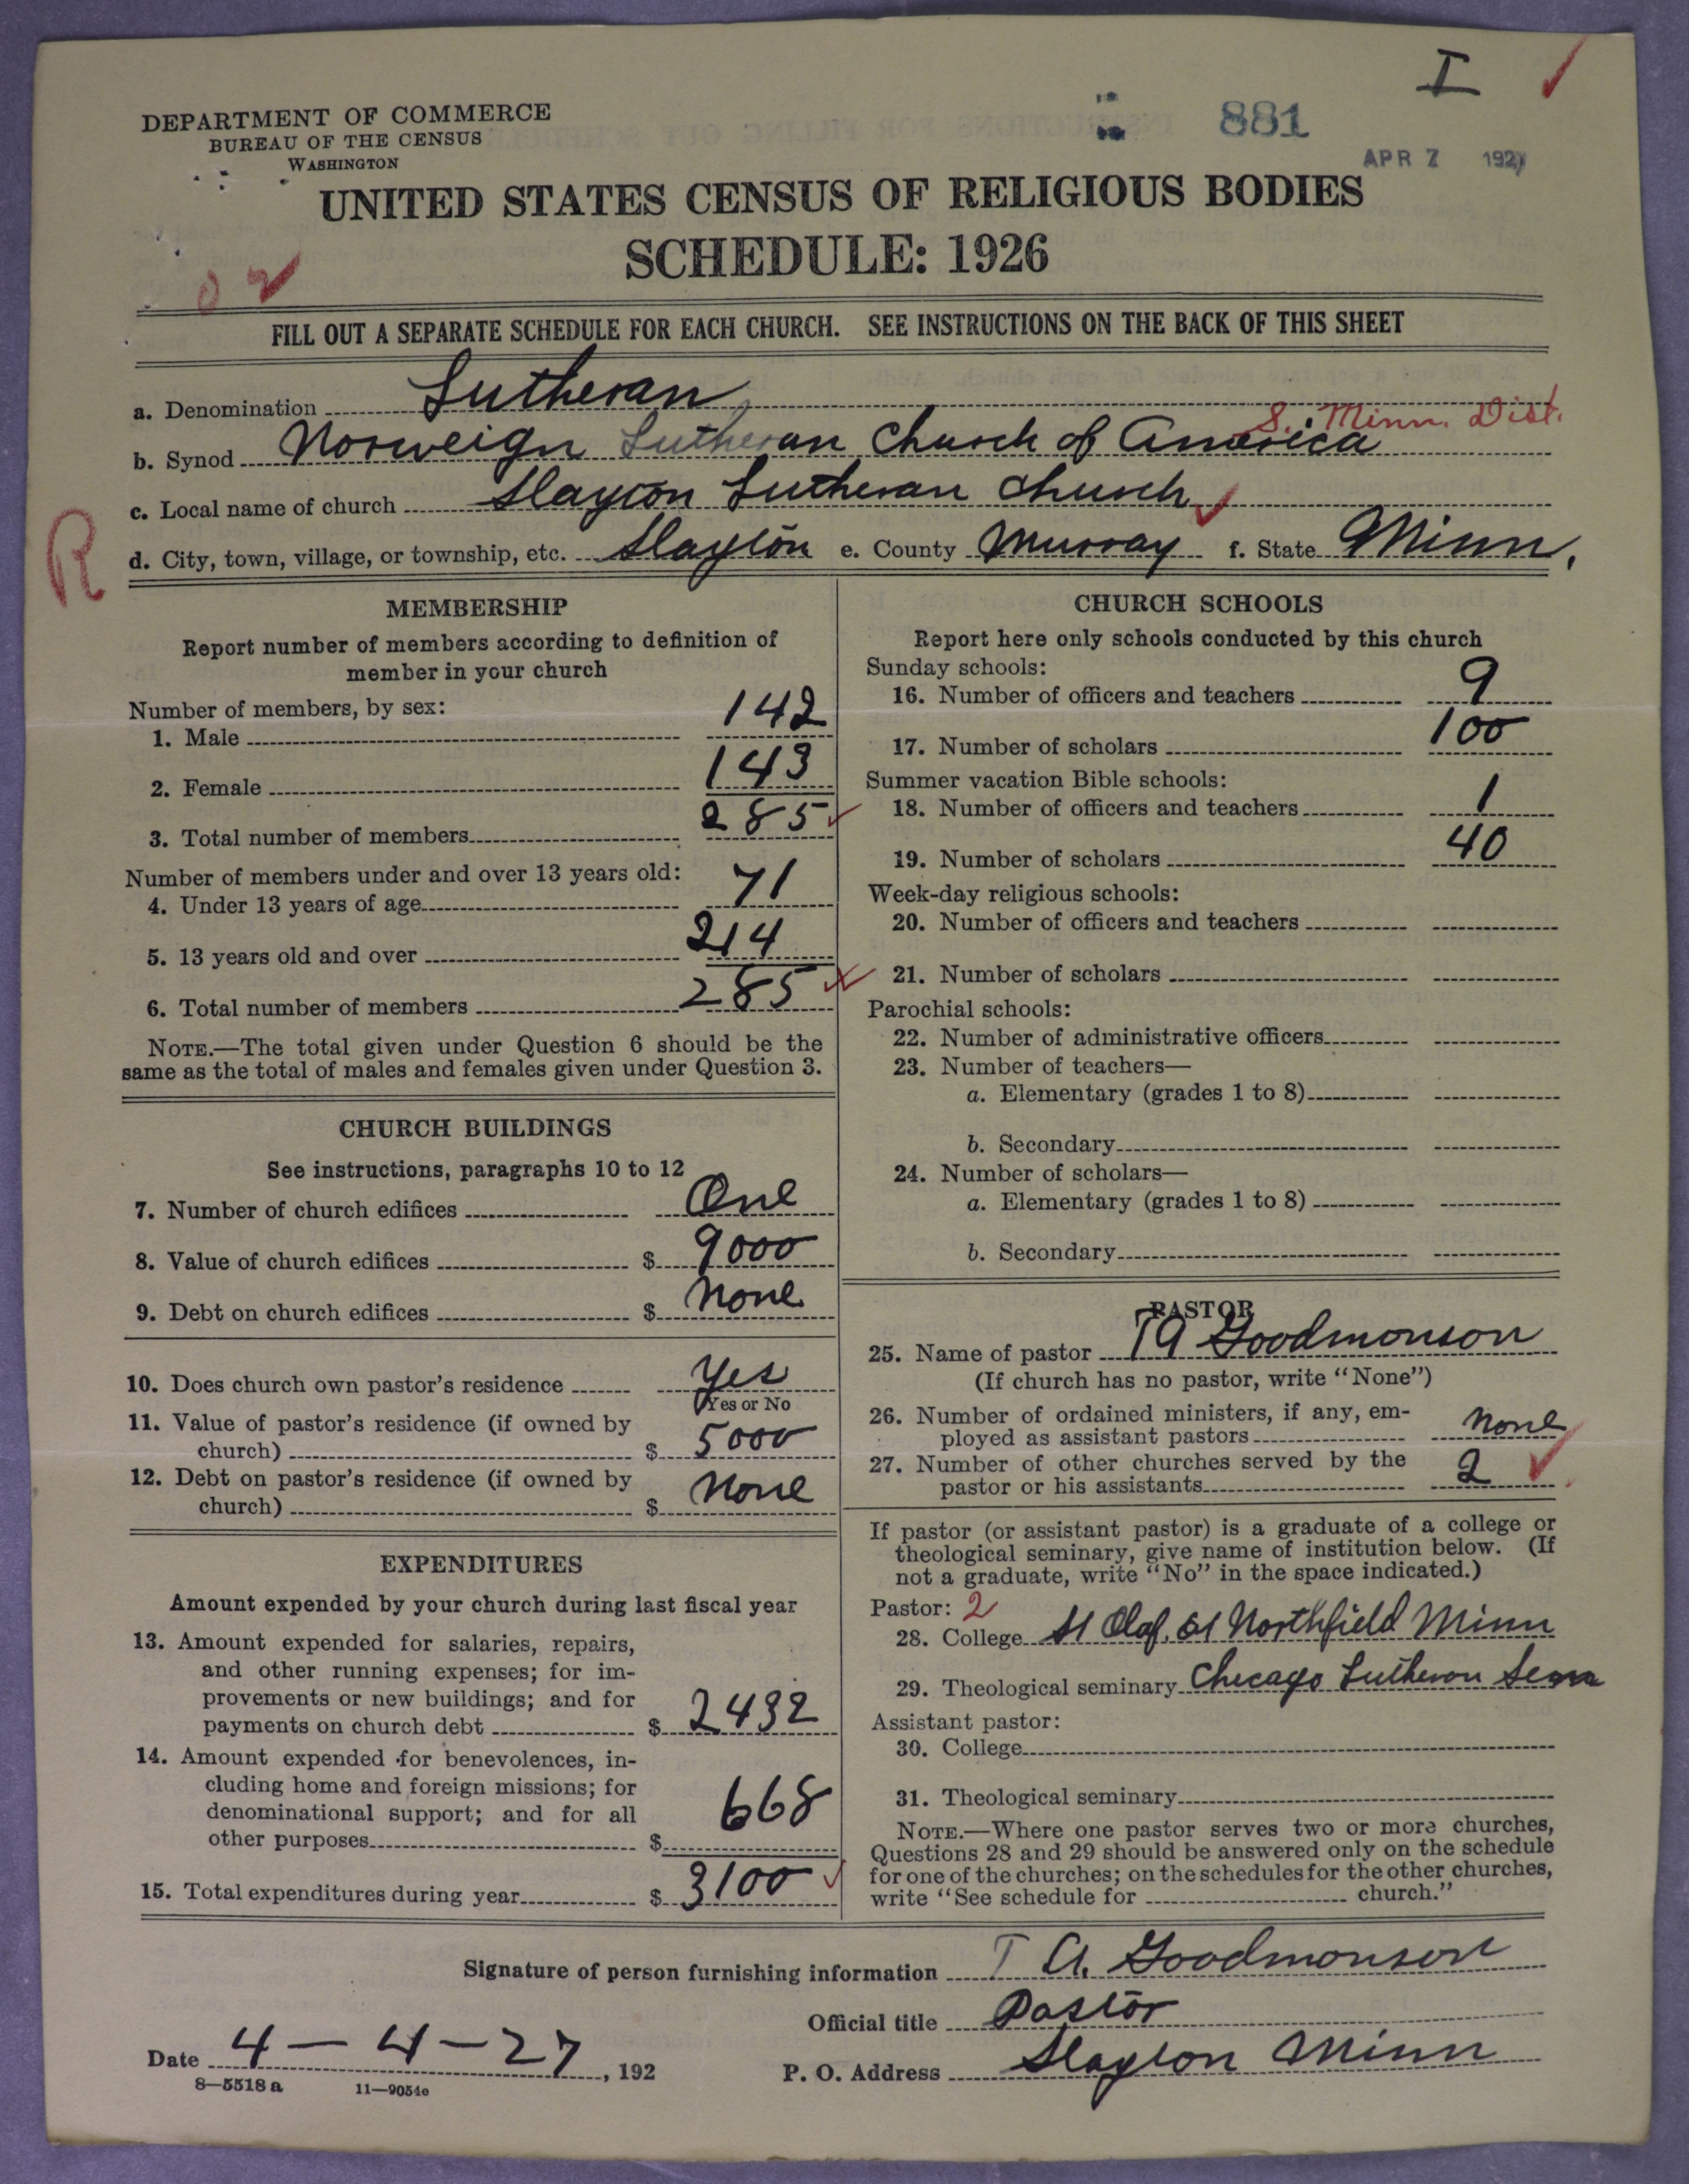 I
881
APR 7 1927
DEPARTMENT OF COMMERCE
BUREAU OF THE CENSUS
WASHINGTON
UNITED STATES CENSUS OF RELIGIOUS BODIES
SCHEDULE: 1926
FILL OUT A SEPARATE SCHEDULE FOR EACH CHURCH. SEE INSTRUCTIONS ON THE BACK OF THIS SHEET
a. Denomination Lutheran
S. Minn. Dist.
b. Synod Norweign Lutheran Church of America
c. Local name of church Slayton Lutheran Church
R
d. City, town, village, or township, etc. Slayton e. County Murray f. State Minn.
MEMBERSHIP
Report number of members according to definition of
member in your church
Number of members, by sex:
1. Male 142
2. Female 143
3. Total number of members 285
Number of members under and over 13 years old:
4. Under 13 years of age 71
5. 13 years old and over 214
6. Total number of members 285
NOTE.—The total given under Question 6 should be the
same as the total of males and females given under Question 3.
CHURCH BUILDINGS
See instructions, paragraphs 10 to 12
7. Number of church edifices One
8. Value of church edifices $ 9000
9. Debt on church edifices $ None
10. Does church own pastor's residence Yes
Yes or No
11. Value of pastor's residence (if owned by
church) $ 5000
12. Debt on pastor's residence (if owned by
church) $ None
EXPENDITURES
Amount expended by your church during last fiscal year
13. Amount expended for salaries, repairs,
and other running expenses; for im-
provements or new buildings; and for
payments on church debt $ 2432
14. Amount expended for benevolences, in-
cluding home and foreign missions; for
denominational support; and for all
other purposes $ 668
15. Total expenditures during year $ 3100
CHURCH SCHOOLS
Report here only schools conducted by this church
Sunday schools:
16. Number of officers and teachers 9
17. Number of scholars 100
Summer vacation Bible schools:
18. Number of officers and teachers 1
19. Number of scholars 40
Week-day religious schools:
20. Number of officers and teachers
21. Number of scholars
Parochial schools:
22. Number of administrative officers
23. Number of teachers—
a. Elementary (grades 1 to 8)
b. Secondary
24. Number of scholars—
a. Elementary (grades 1 to 8)
b. Secondary
PASTOR
25. Name of pastor T A Goodmonson
(If church has no pastor, write "None")
26. Number of ordained ministers, if any, em-
ployed as assistant pastors None
27. Number of other churches served by the
pastor or his assistants 2
If pastor (or assistant pastor) is a graduate of a college or
theological seminary, give name of institution below. (If
not a graduate, write "No" in the space indicated.)
Pastor: 2
28. College St Olaf, Northfield Minn
29. Theological seminary Chicago Lutheran Sem
Assistant pastor:
30. College
31. Theological seminary
NOTE.—Where one pastor serves two or more churches,
Questions 28 and 29 should be answered only on the schedule
for one of the churches; on the schedules for the other churches,
write "See schedule for church."
Signature of person furnishing information T A. Goodmonson
Official title Pastor
Date 4 - 4 - 27, 192
P. O. Address Slayton Minn
8—5518 a 11—9054e